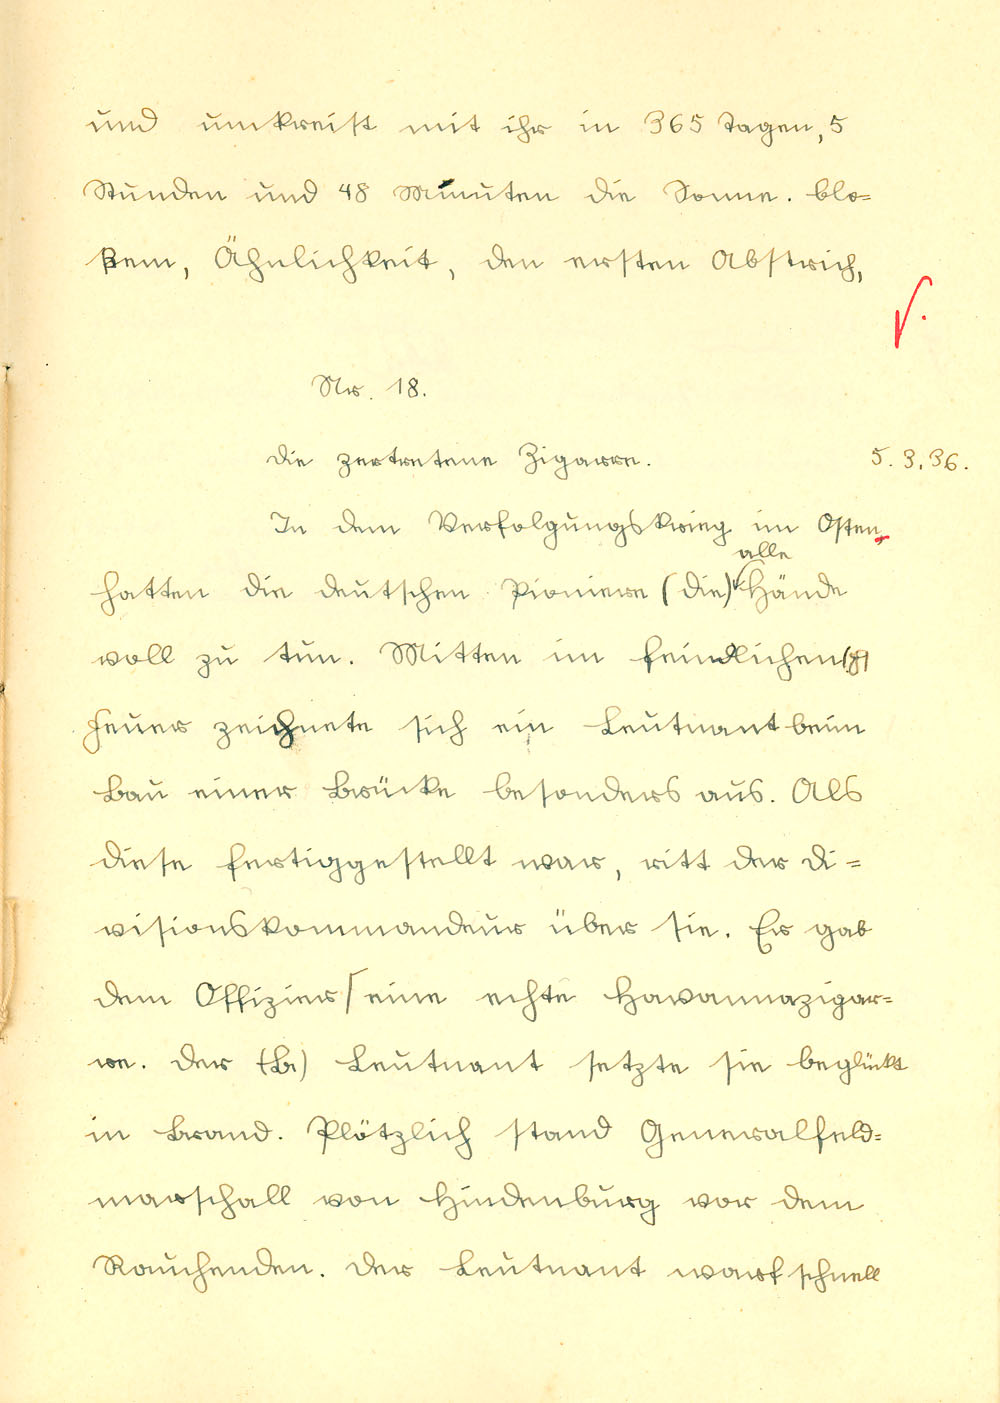 und umkreist mit ihr in 365 Tagen, 5
Stunden und 48 Minuten die Sonne. blo=
ßem, Ähnlichkeit, den ersten Abstrich,
Nr. 18.
Die zertretene Zigarre. 5. 3. 36.
In dem Verfolgungskrieg im Osten,
alle
hatten die deutschen Pioniere (die) Hände
voll zu tun. Mitten im feindlichen
Feuer zeichnete sich ein Leutnant beim
Bau einer Brücke besonders aus. Als
diese fertiggestellt war, ritt der Di=
visionskommandeur über sie. Er gab
dem Offizier eine echte Havannazigar=
re. Der (Br) Leutnant setzte sie beglückt
in Brand. Plötzlich stand Generalfeld=
marschall von Hindenburg vor dem
Rauchenden. Der Leutnant warf schnell